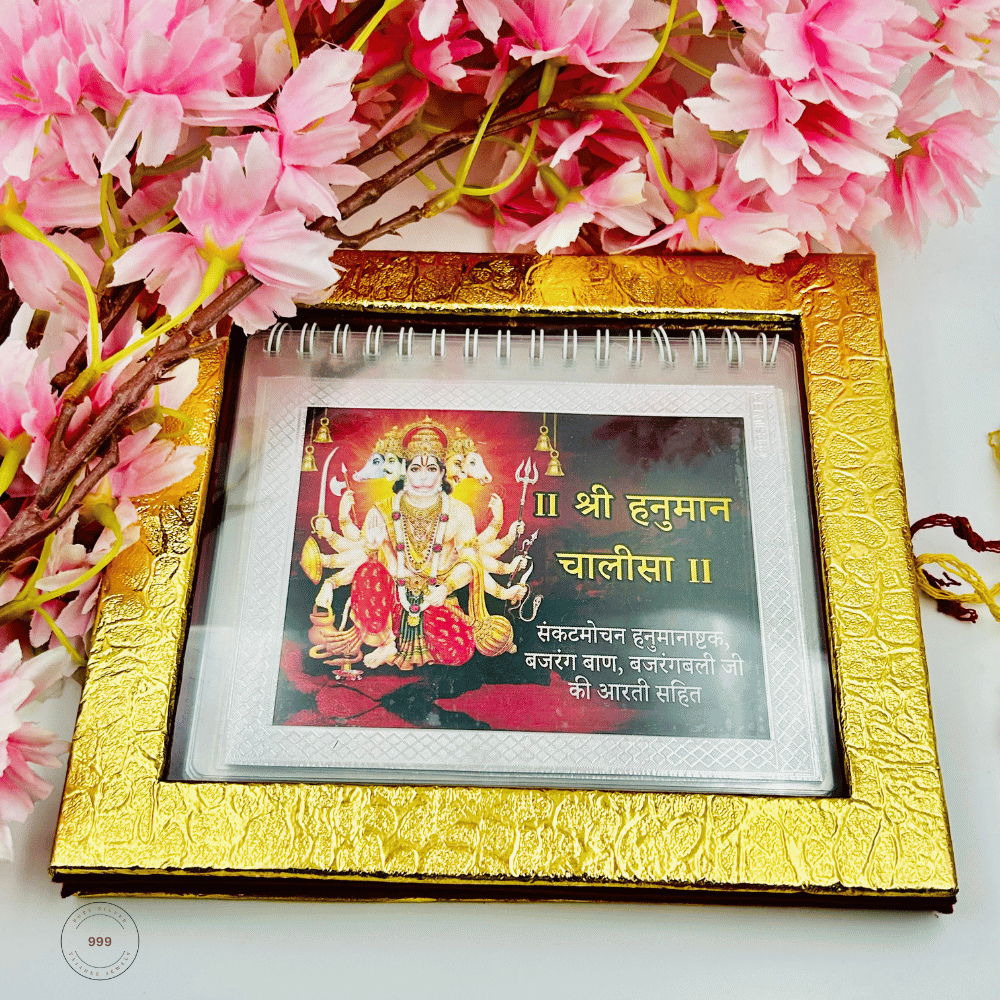 ॥ श्री हनुमान
चालीसा ॥
संकटमोचन हनुमानाष्टक,
बजरंग बाण, बजरंगबली जी
की आरती सहित
PURE SILVER
999